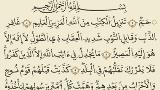 بِسْمِ اللَّهِ الرَّحْمَٰنِ الرَّحِيمِ
حمٓ ۝ تَنزِيلُ الْكِتَابِ مِنَ اللَّهِ الْعَزِيزِ الْعَلِيمِ ۝ غَافِرِ
الذَّنبِ وَقَابِلِ التَّوْبِ شَدِيدِ الْعِقَابِ ذِي الطَّوْلِ لَا إِلَٰهَ إِلَّا
هُوَ إِلَيْهِ الْمَصِيرُ ۝ مَا يُجَادِلُ فِي آيَاتِ اللَّهِ إِلَّا الَّذِينَ كَفَرُوا
فَلَا يَغْرُرْكَ تَقَلُّبُهُمْ فِي الْبِلَادِ ۝ كَذَّبَتْ قَبْلَهُمْ قَوْمُ نُوحٍ